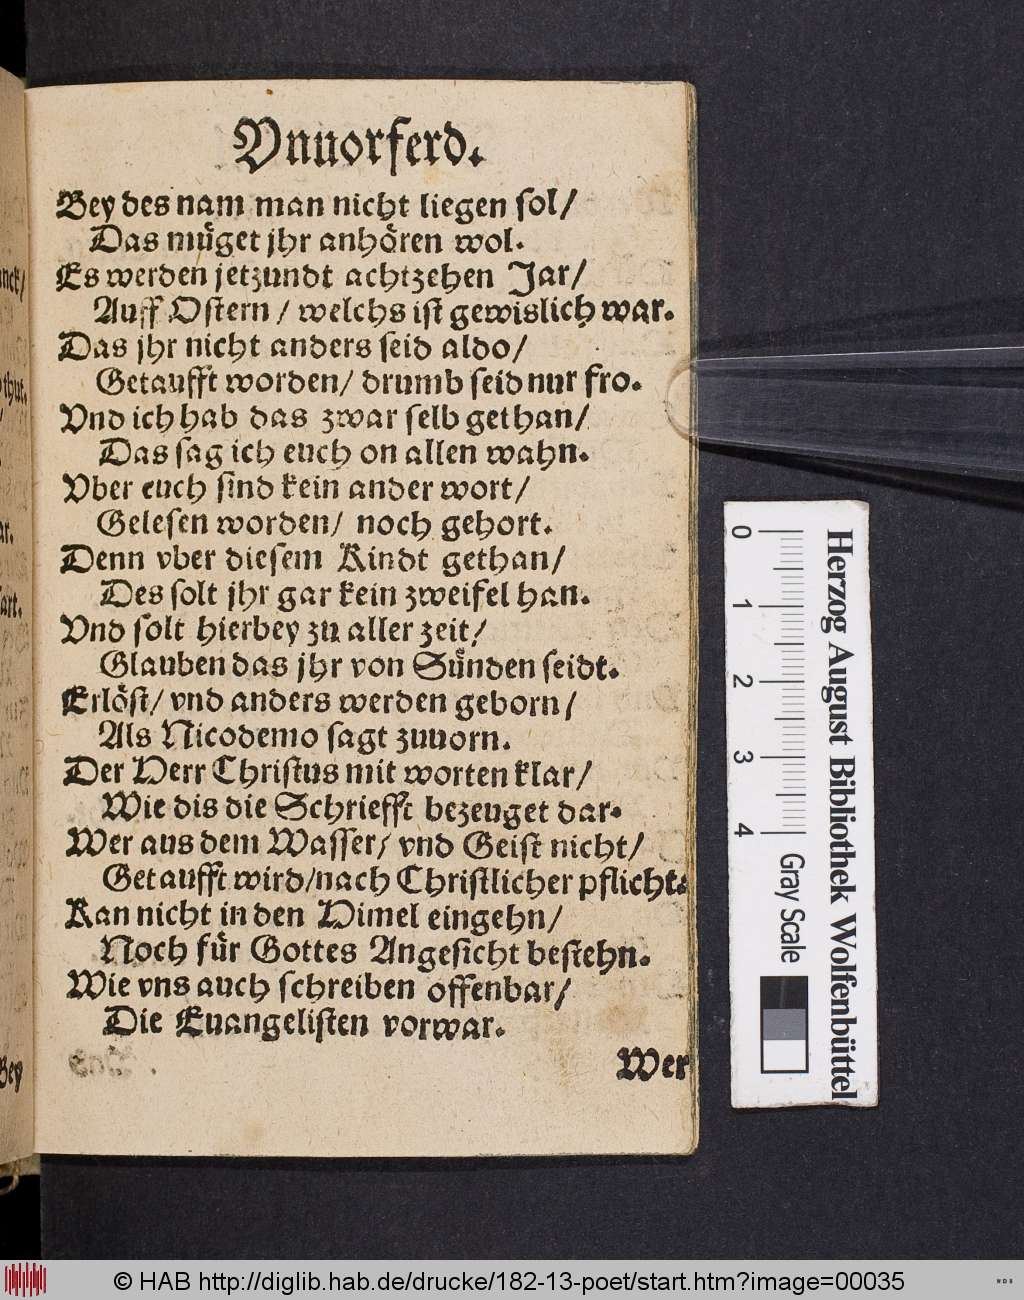 Vnuorferd.
Bey des nam man nicht liegen sol/
Das müget jhr anhören wol.
Es werden jetzundt achtzehen Jar/
Auff Ostern / welchs ist gewislich war.
Das jhr nicht anders seid aldo/
Getaufft worden/ drumb seid nur fro.
Vnd ich hab das zwar selb gethan/
Das sag ich euch on allen wahn.
Vber euch sind kein ander wort/
Gelesen worden/ noch gehort.
Denn vber diesem Kindt gethan/
Des solt jhr gar kein zweifel han.
Vnd solt hierbey zu aller zeit/
Glauben das jhr von Sünden seidt.
Erlöst/ vnd anders werden geborn/
Als Nicodemo sagt zuuorn.
Der Herr Christus mit worten klar/
Wie dis die Schriefft bezeuget dar.
Wer aus dem Wasser/ vnd Geist nicht/
Getaufft wird/nach Christlicher pflicht.
Kan nicht in den Himel eingehn/
Noch für Gottes Angesicht bestehn.
Wie vns auch schreiben offenbar/
Die Euangelisten vorwar.
Wer
Bey
0 1 2 3 4
Gray Scale
Herzog August Bibliothek Wolfenbüttel
© HAB http://diglib.hab.de/drucke/182-13-poet/start.htm?image=00035